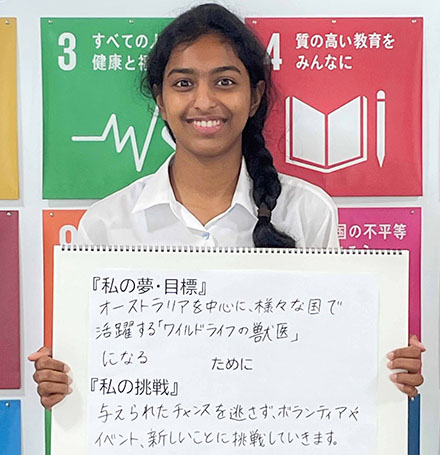 3 すべての人
健康と福
4 質の高い教育を
みんなに
国の不平等
『私の夢・目標』
オーストラリアを中心に、様々な国で
活躍する「ワイルドライフの獣医」
になる ために
『私の挑戦』
与えられたチャンスを逃さず、ボランティアや
イベント、新しいことに挑戦していきます。